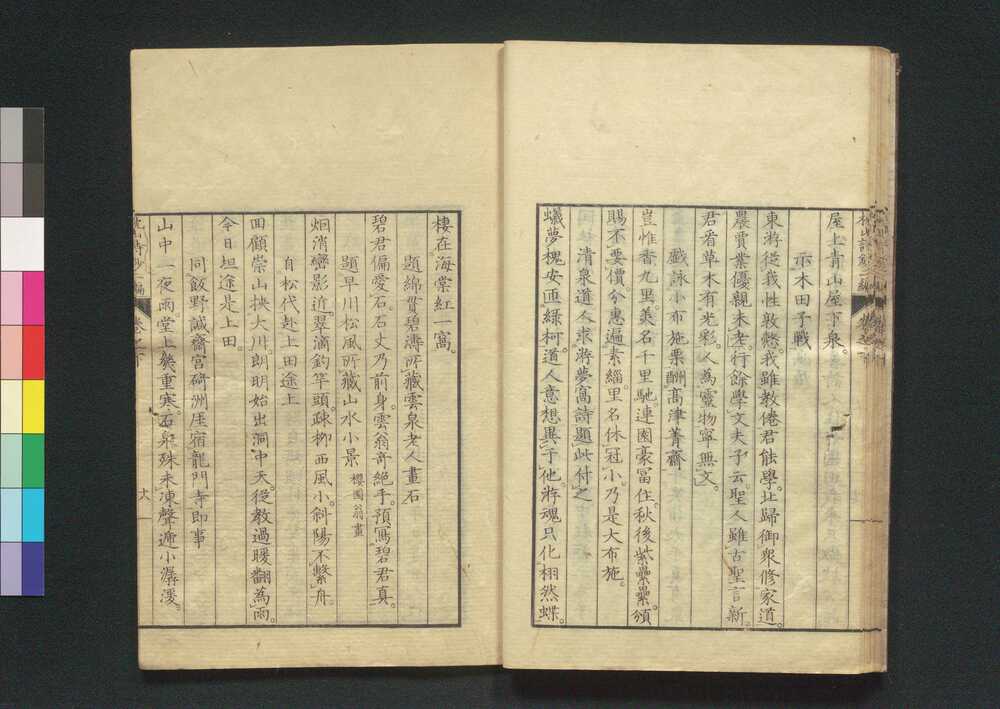 屋上青山屋下泉。
示木田子戰
東游從我性敦慤。我雖教倦君能學。止歸御衆修家道。
農賈業優親未老。行餘學文夫子云。聖人雖古聖言新。
君看草木有光彩。人為靈物寧無文。
戲詠小布施栗酬髙津菁齋
豈惟香九里。美名千里馳。連園豪冨住。秋後紫纍纍。頒
賜不要價。分惠遍素緇。里名休冠小。乃是大布施。
清泉道人求將夢窩詩題此付之
蟻夢槐安匝綠柯。道人意想異于他。游魂只化栩然蝶。
棲在海棠紅一窩。
題綿貫碧濤所藏雲泉老人畫石
碧君偏愛石。石丈乃前身。雲翁竒絶手。預寫碧君真。
題早川松風所藏山水小景 櫻園翁畫
烟消巒影近。翠滴釣竿頭。疎柳西風小。斜陽不繫舟。
自松代赴上田途上
四顧崇山挾大川。朗明始出洞中天。從教過暖翻為雨。
今日坦途是上田。
同飯野誠齋宮𥔎洲厓宿龍門寺即事
山中一夜雨。堂上幾重寒。石泉殊未凍。聲遞小潺湲。